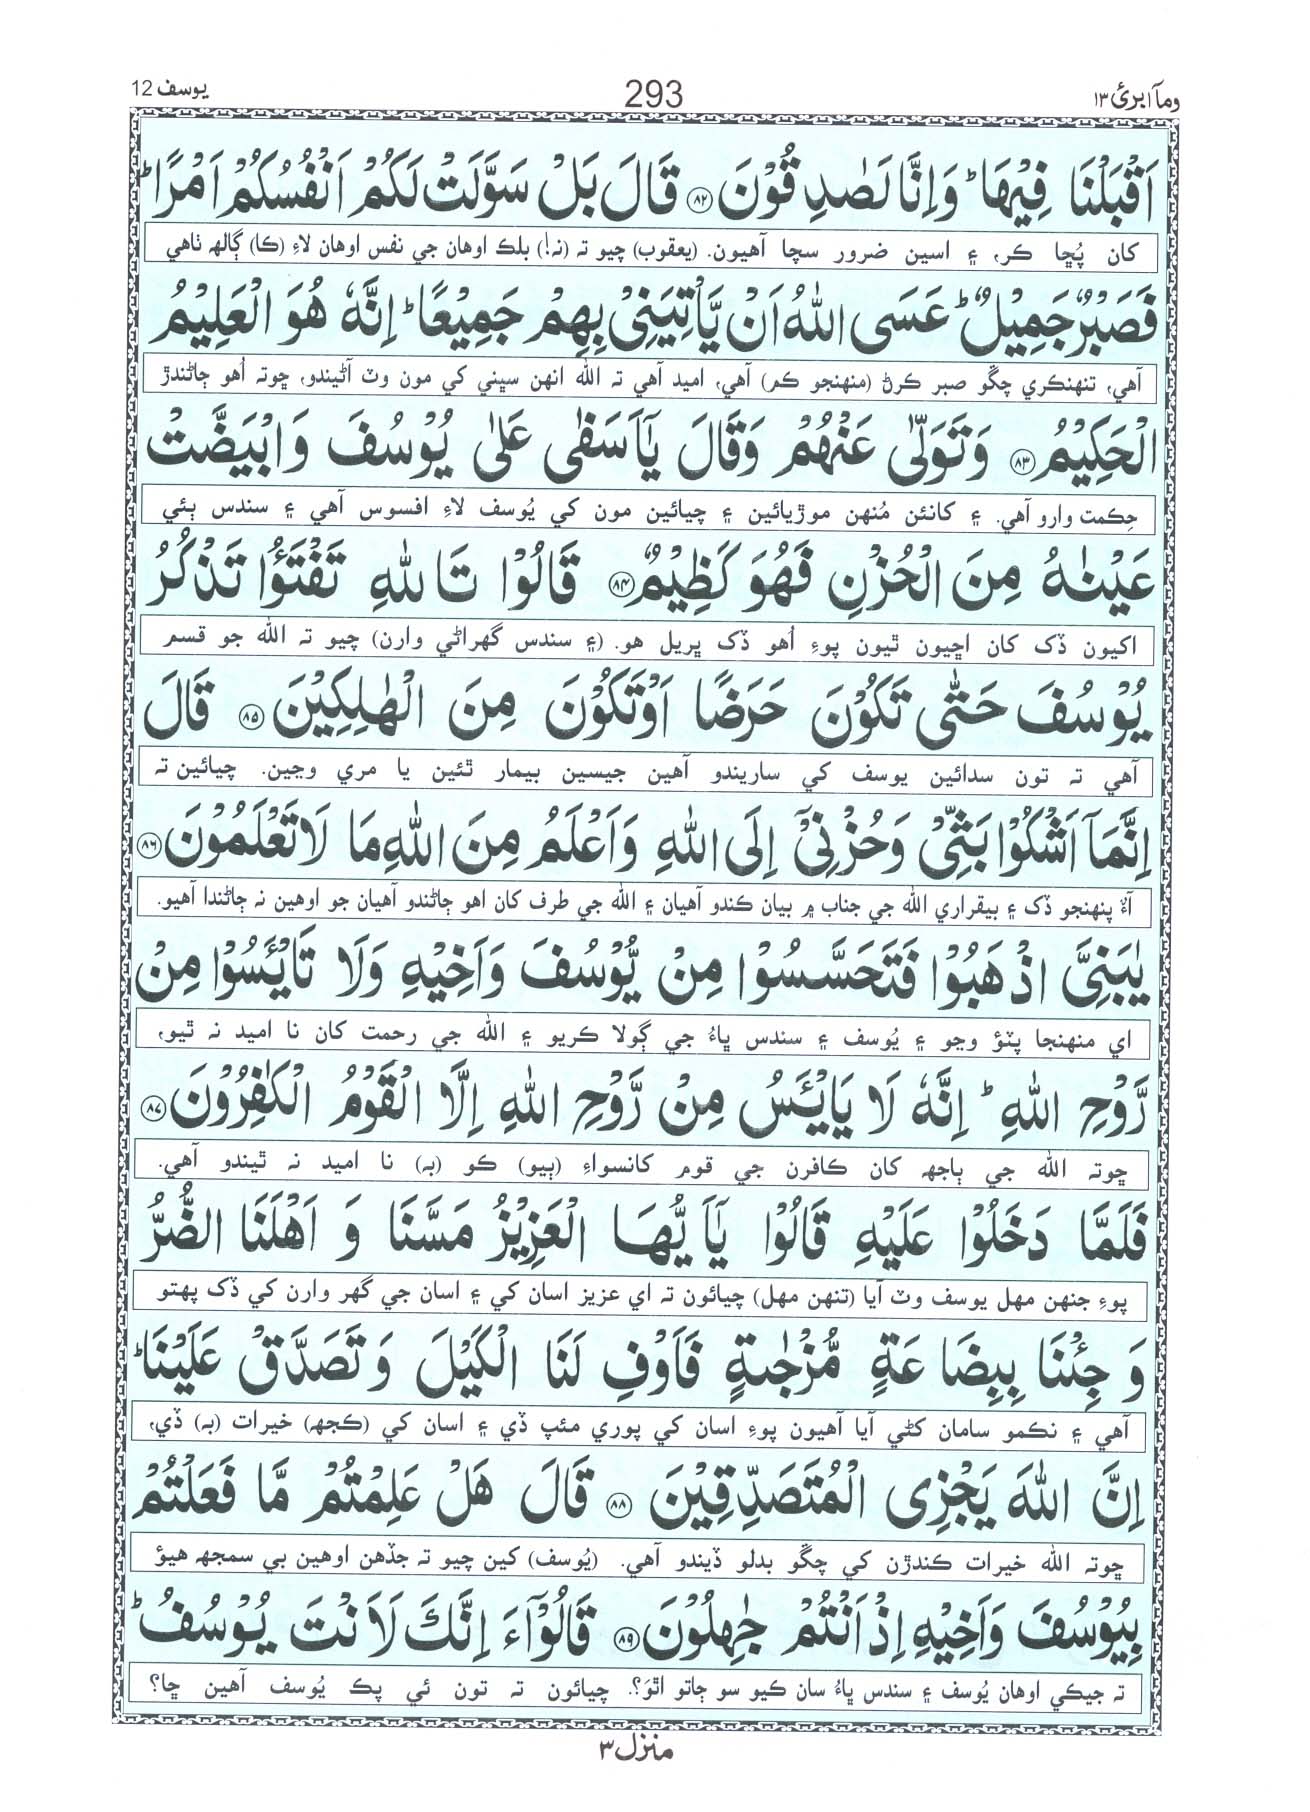 ومآ ابرئ ١٣
293
يوسف 12
اَقْبَلْنَا فِيْهَا ؕ وَاِنَّا لَصٰدِقُوْنَ ﴿٨٢﴾ قَالَ بَلْ سَوَّلَتْ لَكُمْ اَنْفُسُكُمْ اَمْرًا ؕ
کان پُڇا ڪر، ۽ اسين ضرور سچا آهيون. (يعقوب) چيو تہ (نہ!) بلڪ اوهان جي نفس اوهان لاءِ (ڪا) ڳالهہ ٺاهي
فَصَبْرٌ جَمِيْلٌ ؕ عَسَى اللّٰهُ اَنْ يَّاْتِيَنِيْ بِهِمْ جَمِيْعًا ؕ اِنَّهٗ هُوَ الْعَلِيْمُ
آهي، تنهنڪري چڱو صبر ڪرڻ (منهنجو ڪم) آهي، اميد آهي تہ الله انهن سڀني کي مون وٽ آڻيندو، ڇوتہ اُهو ڄاڻندڙ
الْحَكِيْمُ ﴿٨٣﴾ وَتَوَلّٰى عَنْهُمْ وَقَالَ يٰٓاَسَفٰى عَلٰى يُوْسُفَ وَابْيَضَّتْ
حِڪمت وارو آهي. ۽ کانئن مُنهن موڙيائين ۽ چيائين مون کي يُوسف لاءِ افسوس آهي ۽ سندس ٻئي
عَيْنٰهُ مِنَ الْحُزْنِ فَهُوَ كَظِيْمٌ ﴿٨٤﴾ قَالُوْا تَاللّٰهِ تَفْتَؤُا تَذْكُرُ
اکيون ڏک کان اڇيون ٿيون پوءِ اُهو ڏک ڀريل هو. (۽ سندس گهراڻي وارن) چيو تہ الله جو قسم
يُوْسُفَ حَتّٰى تَكُوْنَ حَرَضًا اَوْتَكُوْنَ مِنَ الْهٰلِكِيْنَ ﴿٨٥﴾ قَالَ
آهي تہ تون سدائين يوسف کي ساريندو آهين جيسين بيمار ٿئين يا مري وڃين. چيائين تہ
اِنَّمَآ اَشْكُوْا بَثِّيْ وَحُزْنِيْٓ اِلَى اللّٰهِ وَاَعْلَمُ مِنَ اللّٰهِ مَا لَا تَعْلَمُوْنَ ﴿٨٦﴾
آءٌ پنهنجو ڏک ۽ بيقراري الله جي جناب ۾ بيان ڪندو آهيان ۽ الله جي طرف کان اهو ڄاڻندو آهيان جو اوهين نہ ڄاڻندا آهيو.
يٰبَنِيَّ اذْهَبُوْا فَتَحَسَّسُوْا مِنْ يُّوْسُفَ وَاَخِيْهِ وَلَا تَايْـَٔسُوْا مِنْ
اي منهنجا پٽؤ وڃو ۽ يُوسف ۽ سندس ڀاءُ جي ڳولا ڪريو ۽ الله جي رحمت کان نا اميد نہ ٿيو،
رَّوْحِ اللّٰهِ ؕ اِنَّهٗ لَا يَايْـَٔسُ مِنْ رَّوْحِ اللّٰهِ اِلَّا الْقَوْمُ الْكٰفِرُوْنَ ﴿٨٧﴾
ڇوتہ الله جي ٻاجهہ کان ڪافرن جي قوم کانسواءِ (ٻيو) ڪو (بہ) نا اميد نہ ٿيندو آهي.
فَلَمَّا دَخَلُوْا عَلَيْهِ قَالُوْا يٰٓاَيُّهَا الْعَزِيْزُ مَسَّنَا وَ اَهْلَنَا الضُّرُّ
پوءِ جنهن مهل يوسف وٽ آيا (تنهن مهل) چيائون تہ اي عزيز اسان کي ۽ اسان جي گهر وارن کي ڏک پهتو
وَ جِئْنَا بِبِضَاعَةٍ مُّزْجٰىةٍ فَاَوْفِ لَنَا الْكَيْلَ وَ تَصَدَّقْ عَلَيْنَا ؕ
آهي ۽ نڪمو سامان کڻي آيا آهيون پوءِ اسان کي پوري مئپ ڏي ۽ اسان کي (ڪجهہ) خيرات (بہ) ڏي،
اِنَّ اللّٰهَ يَجْزِى الْمُتَصَدِّقِيْنَ ﴿٨٨﴾ قَالَ هَلْ عَلِمْتُمْ مَّا فَعَلْتُمْ
ڇوتہ الله خيرات ڪندڙن کي چڱو بدلو ڏيندو آهي. (يُوسف) کين چيو تہ جڏهن اوهين بي سمجهہ هيؤ
بِيُوْسُفَ وَاَخِيْهِ اِذْ اَنْتُمْ جٰهِلُوْنَ ﴿٨٩﴾ قَالُوْٓا ءَ اِنَّكَ لَاَنْتَ يُوْسُفُ ؕ
تہ جيڪي اوهان يُوسف ۽ سندس ڀاءُ سان ڪيو سو ڄاتو اٿوَ؟. چيائون تہ تون ئي پڪ يُوسف آهين ڇا؟
منزل ٣